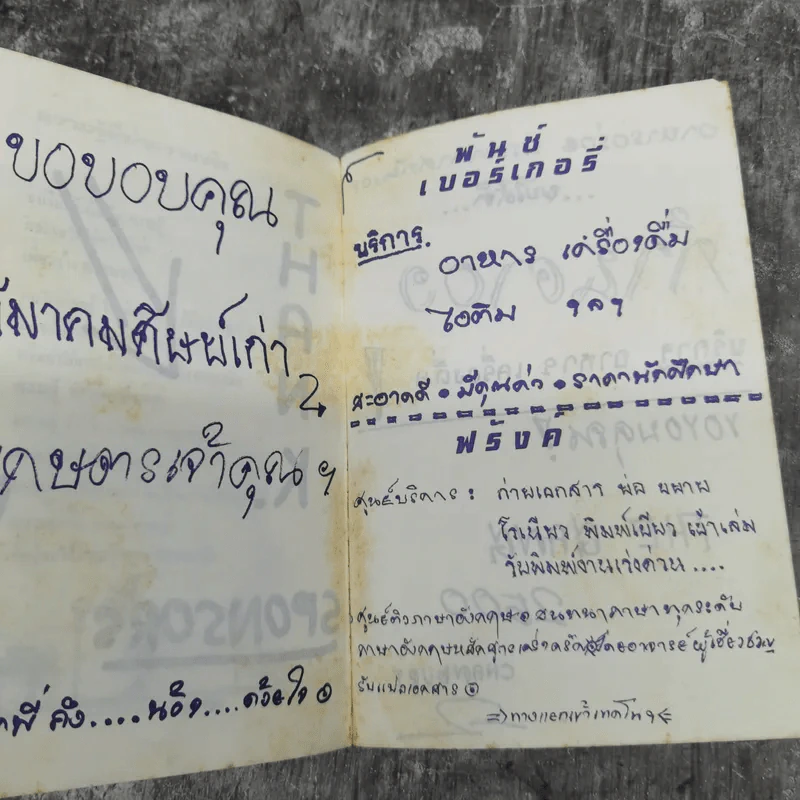 ขอขอบคุณ
สมาคมศิษย์เก่า
เกษตรเจ้าคุณฯ
พี่ ถึง....น้อง....ด้วยใจ
พันช์
เบอร์เกอรี่
บริการ.
อาหาร เครื่องดื่ม
ไอติม ฯลฯ
สะอาดดี • มีคุณค่า • ราคานักศึกษา
ฟรังค์
ศูนย์บริการ : ถ่ายเอกสาร ย่อ ขยาย
โรเนียว พิมพ์เขียว เข้าเล่ม
รับพิมพ์งานเร่งด่วน....
ศูนย์ติวภาษาอังกฤษ สนทนาภาษาทุกระดับ
ภาษาอังกฤษหลักสูตรเคร่งครัด โดยอาจารย์ผู้เชี่ยวชาญ
รับแปลเอกสาร
ทางแยกเข้าเทคโนฯ
THANK.
SPONSORS